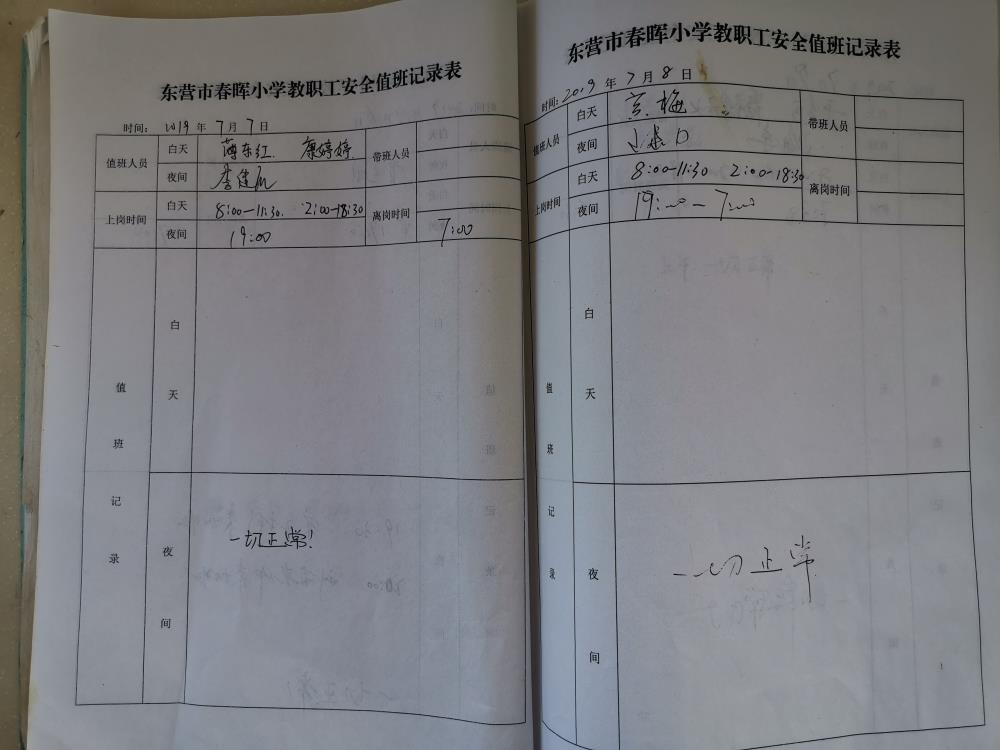 东营市春晖小学教职工安全值班记录表
时间： 2019 年 7 月 7 日
值班人员 白天 薄东红 康婷婷 带班人员
夜间 李建
上岗时间 白天 8:00—11:30. 2:00-18:30 离岗时间
夜间 19:00 7:00
值班记录
白天
夜间 一切正常!
东营市春晖小学教职工安全值班记录表
时间: 2019 年 7 月 8 日
值班人员 白天 梅 带班人员
夜间
上岗时间 白天 8:00-11:30 2:00-18:30 离岗时间
夜间 19:00 — 7:00
值班记录
白天
夜间 一切正常